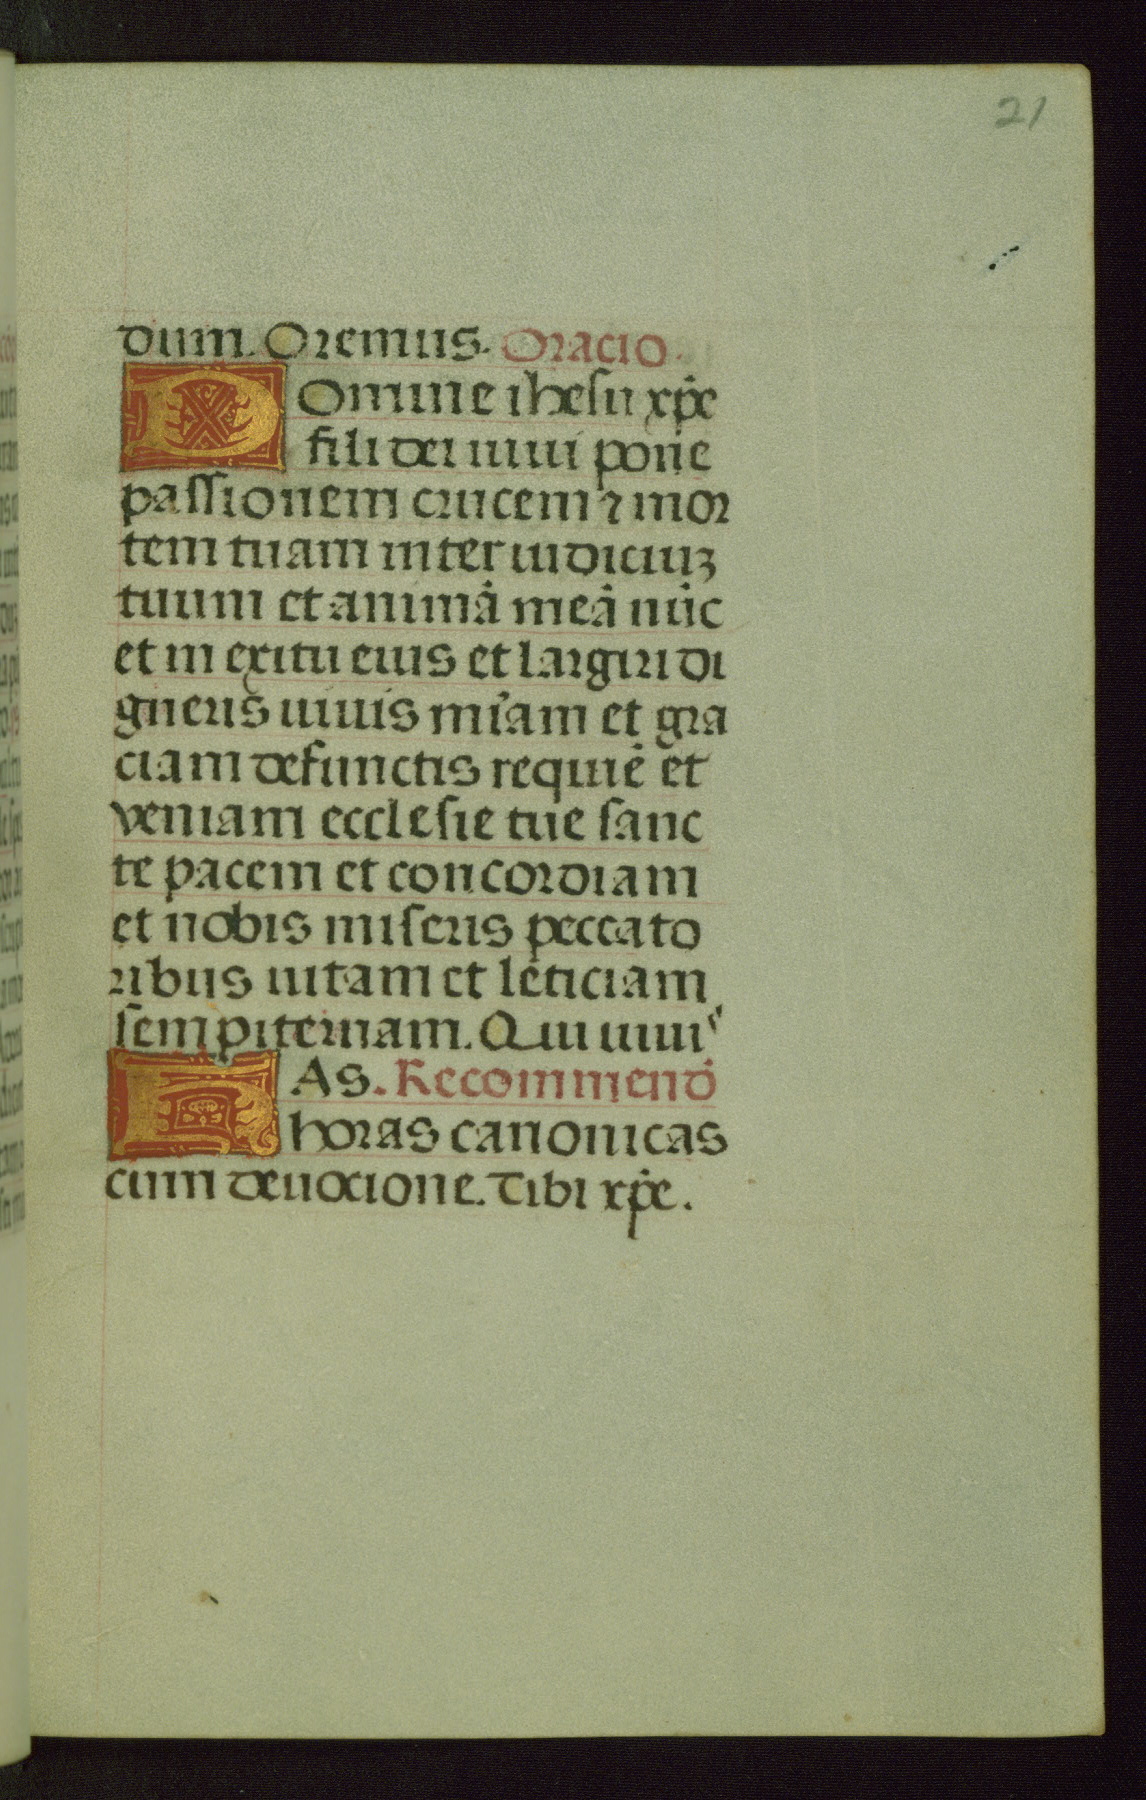 21
dium. Oremus. Oracio.
Domine ihesu xp̄e
fili dei uiui pone
passionem crucem ⁊ mor
tem tuam inter iudiciuꝫ
tuum et animā meā nūc
et in exitu eius et largiri di
gneris uiuis mīam et gra
ciam defunctis requiē et
veniam ecclesie tue sanc
te pacem et concordiam
et nobis miseris peccato
ribus uitam et leticiam
sempiternam. Qui uiui
HAs. Recommend̄
horas canonicas
cum deuocione. Tibi xp̄e.